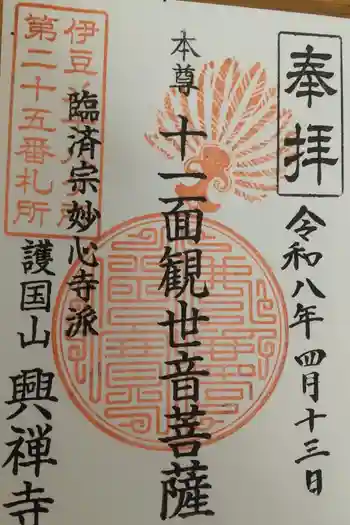 奉拝
令和八年四月十三日
本尊
十一面観世音菩薩
伊豆
第二十五番札所
臨済宗妙心寺派
護国山
興禅寺